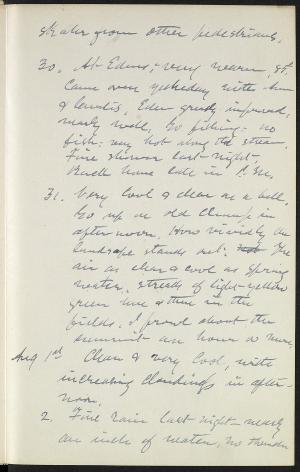 skater from other pedestrians.
30. At Edens; very warm, st.
Came over yesterday with him
& Curtis, Eden greatly improved,
nearly well. Go fishing - no
fish: very hot along the stream.
Fine shower last night.
Back home late in P.M.
31. Very Cool & clear as a bell.
Go up on old Clump in
afternoon. How vividly the
landscape stands out: The
air as clear & cool as spring
water. Streaks of light-yellow
green here & there in the
fields. I prowl about the
summit an hour or more.
Aug 1st Clear & very Cool, with
increasing cloudiness in after-
noon.
2. Fine rain last night - nearly
an inch of water, no thunder